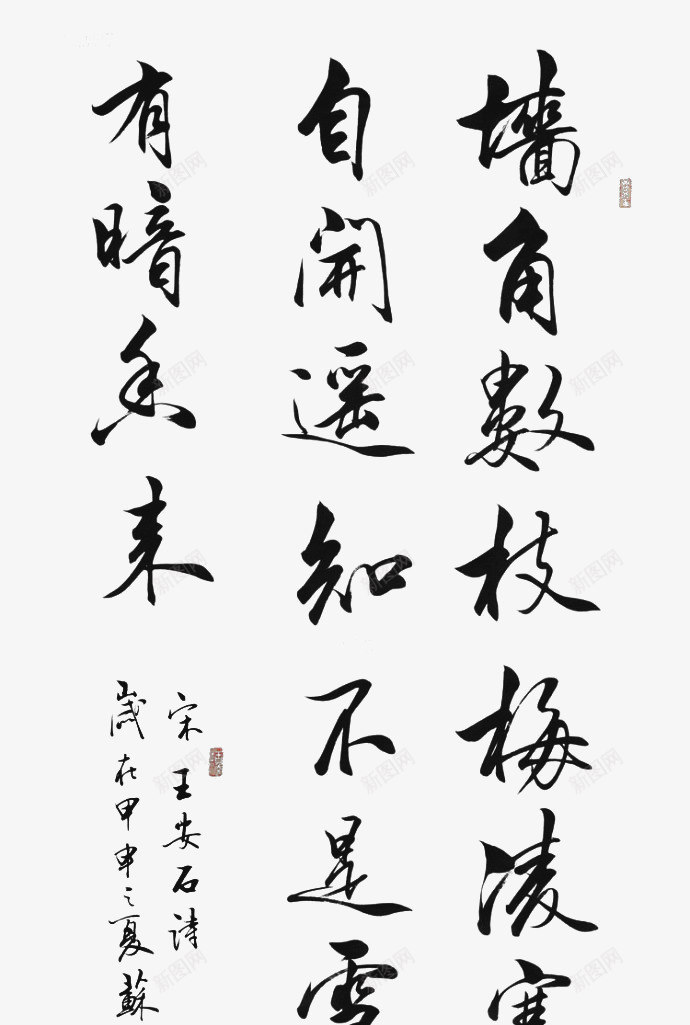 墙角數枝梅凌寒
自開遥知不是雪
有暗香来
宋王安石詩
歲在甲申之夏蘇
新图网